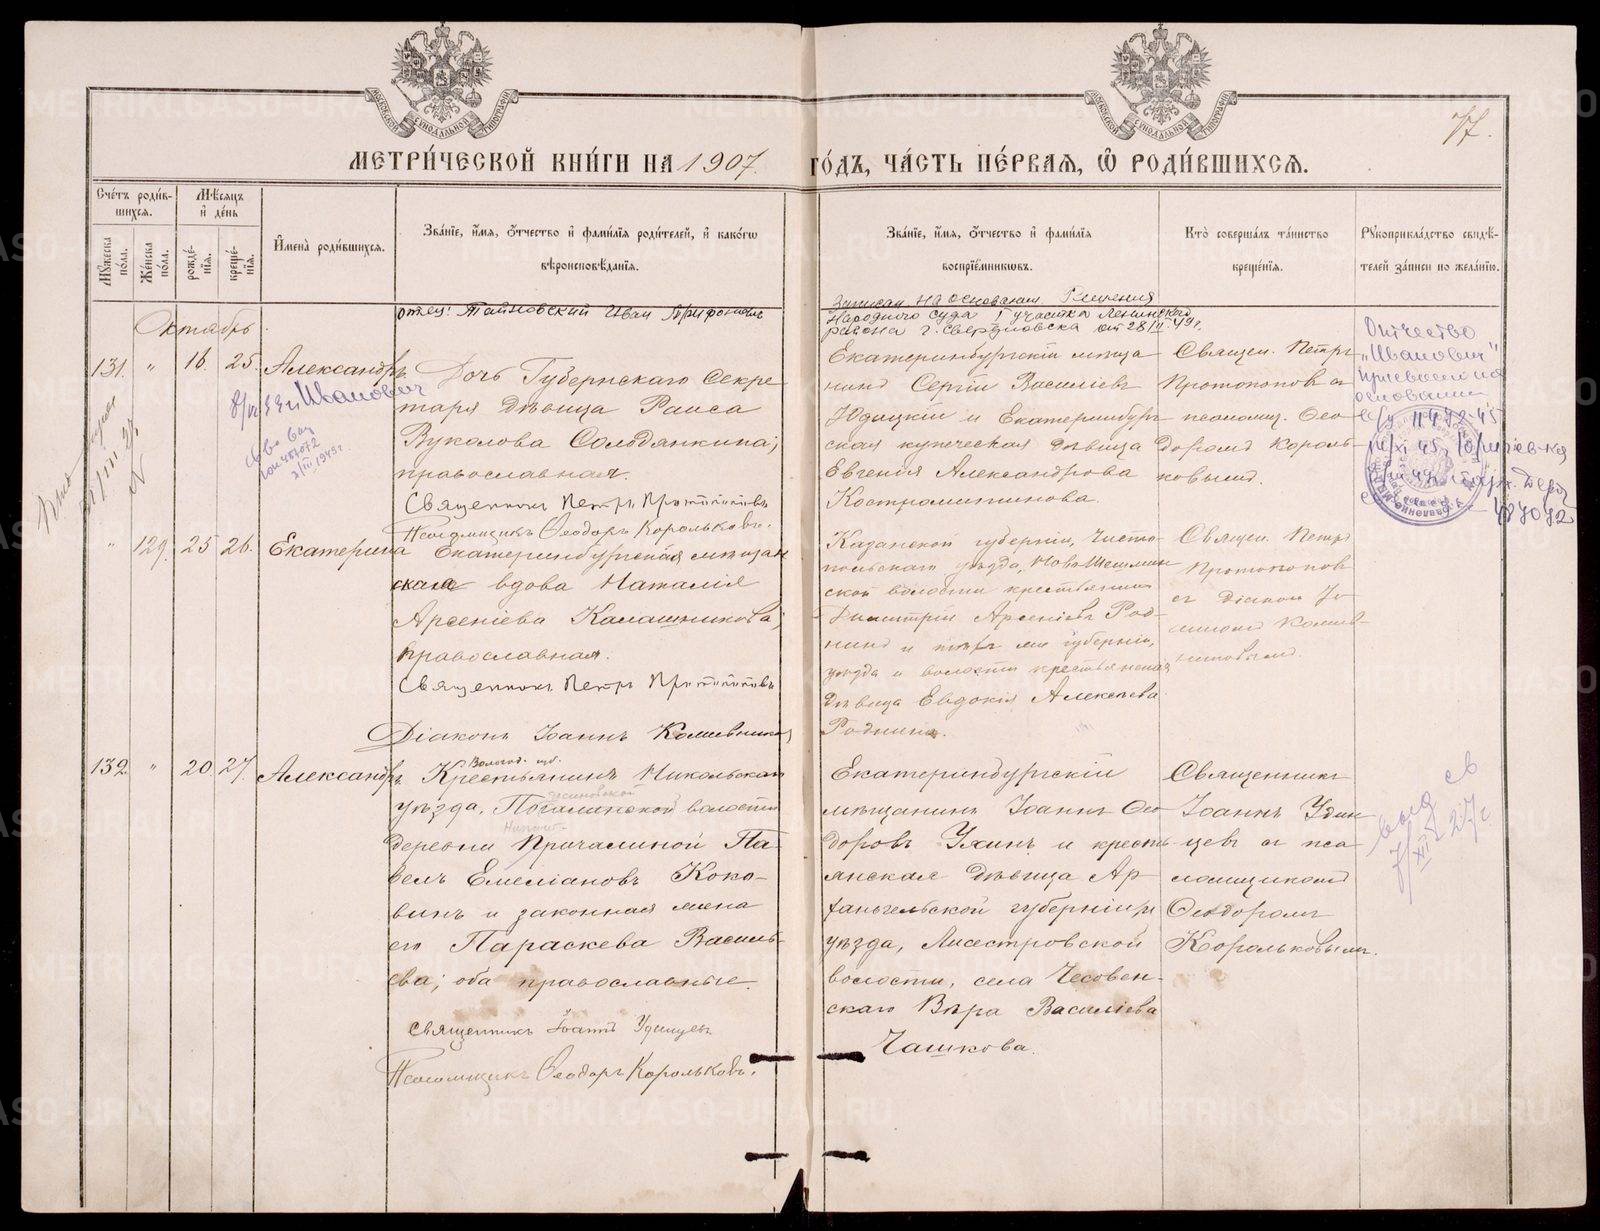 МОСКОВСКОЙ СУНОДАЛЬНОЙ ТИПОГРАФІИ
МОСКОВСКОЙ СУНОДАЛЬНОЙ ТИПОГРАФІИ
77.
МЕТРИ́ЧЕСКОЙ КНИ́ГИ НА 1907. ГО́ДЪ, ЧА́СТЬ ПЕ́РВАЯ, Ѡ҆ РОДИ́ВШИХСѦ.
Сче́тъ роди́в-
шихсѧ.
Мѣ́сѧцъ
и҆ де́нь
Мꙋ́жеска по́ла.
Же́нска по́ла.
рожде́-
нїѧ.
креще́-
нїѧ.
И҆мена̀ роди́вшихсѧ.
Зва́нїе, и҆́мѧ, ѻ҆́тчество и҆ фами́лїѧ роди́телей, и҆ како́гѡ
вѣроисповѣ́данїѧ.
Зва́нїе, и҆́мѧ, ѻ҆́тчество и҆ фами́лїѧ
воспрїе́мникѡвъ.
Кто̀ соверша́лъ та́инство
креще́нїѧ.
Рꙋкоприкла́дство свидѣ́-
телей за́писи по жела́нїю.
отец: Тайновский Иван Трифонович
Записан на основании Решения
Народного Суда 1 участка Ленинского
района г. Свердловска от 28/II 49 г.
Октябрь.
131. " 16. 25. Александръ.
Иванович
3/III 1949 г
Дочь Губернскаго Секре
таря дѣвица Раиса
Вуколова Солодянкина,
православная.
Священникъ Петръ Протопоповъ
Псаломщикъ Ѳеодоръ Корольковъ.
Екатеринбургскій мѣща
нинъ Сергій Василіевъ
Юдицкій и Екатеринбург
ская купеческая дѣвица
Евгенія Александрова
Костромитинова.
Священ. Петръ
Протопоповъ съ
псаломщ. Ѳео-
доромъ Король-
ковымъ.
Отчество
"Иванович"
присвоено на
основании
" 129. 25 26. Екатерина
Екатеринбургская мѣщан
ская вдова Наталія
Арсеніева Калашникова,
православная.
Священникъ Петръ Протопоповъ
Діаконъ Іоаннъ
Казанской губерніи, Чисто-
польскаго уѣзда, Ново Шешмин
ской волости крестьянинъ
Димитрій Арсеніевъ Род-
нинъ и той же губерніи,
уѣзда и волости крестьянская
дѣвица Евдокія Алексѣева
Роднина.
Священ. Петръ
Протопоповъ
съ діакон. Іо-
анномъ
132. " 20. 27. Александръ.
Вологод. губ.
Крестьянинъ Никольскаго
уѣзда, волости
деревни Причалиной Па-
велъ Емеліановъ Коко-
винъ и законная жена
его Параскева Василь-
ева; оба православные.
Священникъ Іоаннъ Удинцевъ
Псаломщикъ Ѳеодоръ Корольковъ.
Екатеринбургскій
мѣщанинъ Іоаннъ Ѳео
доровъ Ухинъ и кресть
янская дѣвица Ар
хангельской губерніи и
уѣзда, Лисестровской
волости, села
Вѣра Василіева
Чашкова.
Священникъ
Іоаннъ Удин
цевъ съ пса
ломщикомъ
Ѳеодоромъ
Корольковымъ.
METRIKI.CASO-URAL.RU